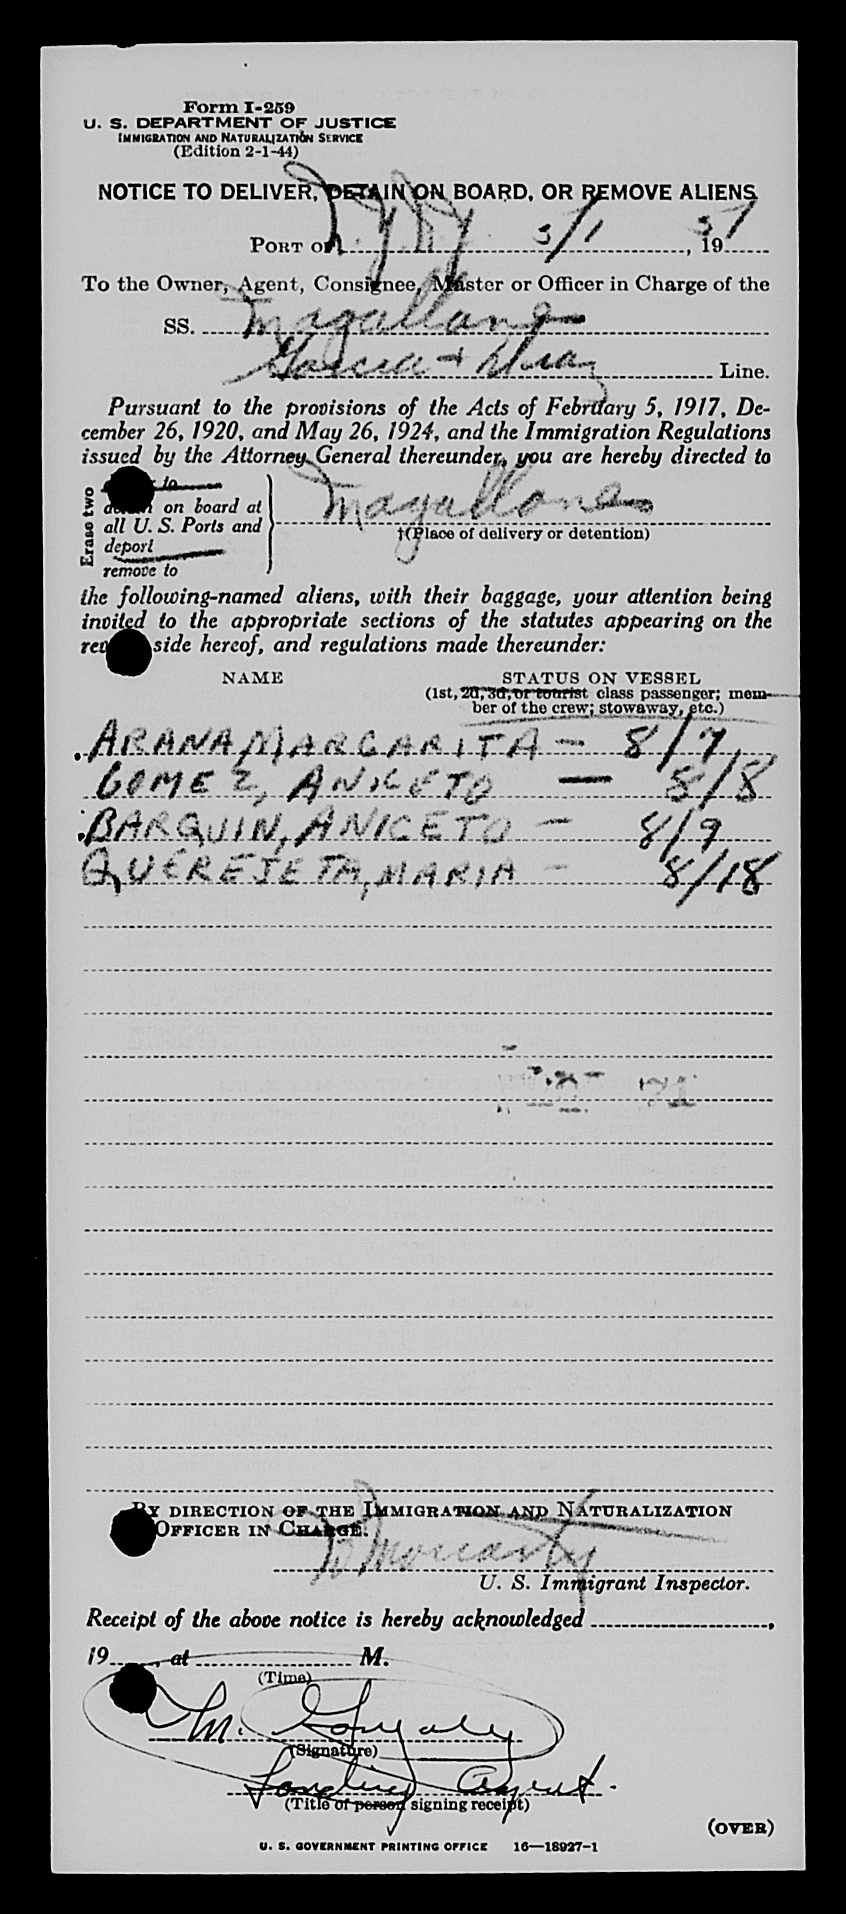 Form I-259
U. S. DEPARTMENT OF JUSTICE
IMMIGRATION AND NATURALIZATION SERVICE
(Edition 2-1-44)
NOTICE TO DELIVER, DETAIN ON BOARD, OR REMOVE ALIENS
PORT OF N.Y. N.Y. 5/1, 1951
To the Owner, Agent, Consignee, Master or Officer in Charge of the
SS. Magallanes
Garcia + Diaz Line.
Pursuant to the provisions of the Acts of February 5, 1917, De-
cember 26, 1920, and May 26, 1924, and the Immigration Regulations
issued by the Attorney General thereunder, you are hereby directed to
Erase two
to
detain on board at
all U. S. Ports and
deport
remove to
Magallanes
†(Place of delivery or detention)
the following-named aliens, with their baggage, your attention being
invited to the appropriate sections of the statutes appearing on the
side hereof, and regulations made thereunder:
NAME STATUS ON VESSEL
(1st, 2d, 3d, or tourist class passenger; mem-
ber of the crew; stowaway, etc.)
ARANA MARGARITA — 8/7
GOMEZ, ANICETO — 8/8
BARQUIN, ANICETO — 8/9
QUEREJETA, MARIA — 8/18
BY DIRECTION OF THE IMMIGRATION AND NATURALIZATION
OFFICER IN CHARGE:
Moriarty
U. S. Immigrant Inspector.
Receipt of the above notice is hereby acknowledged
19, at M.
(Time)
M. Gonzalez
(Signature)
Landing Agent.
(Title of person signing receipt)
(OVER)
U. S. GOVERNMENT PRINTING OFFICE 16—18927-1